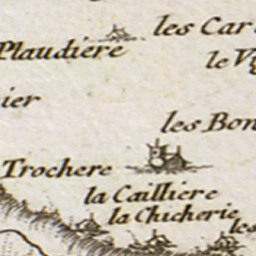 les Car
Plaudiere
le V
ier
les Bon
Trochere
la Cailliere
la Chicherie
les